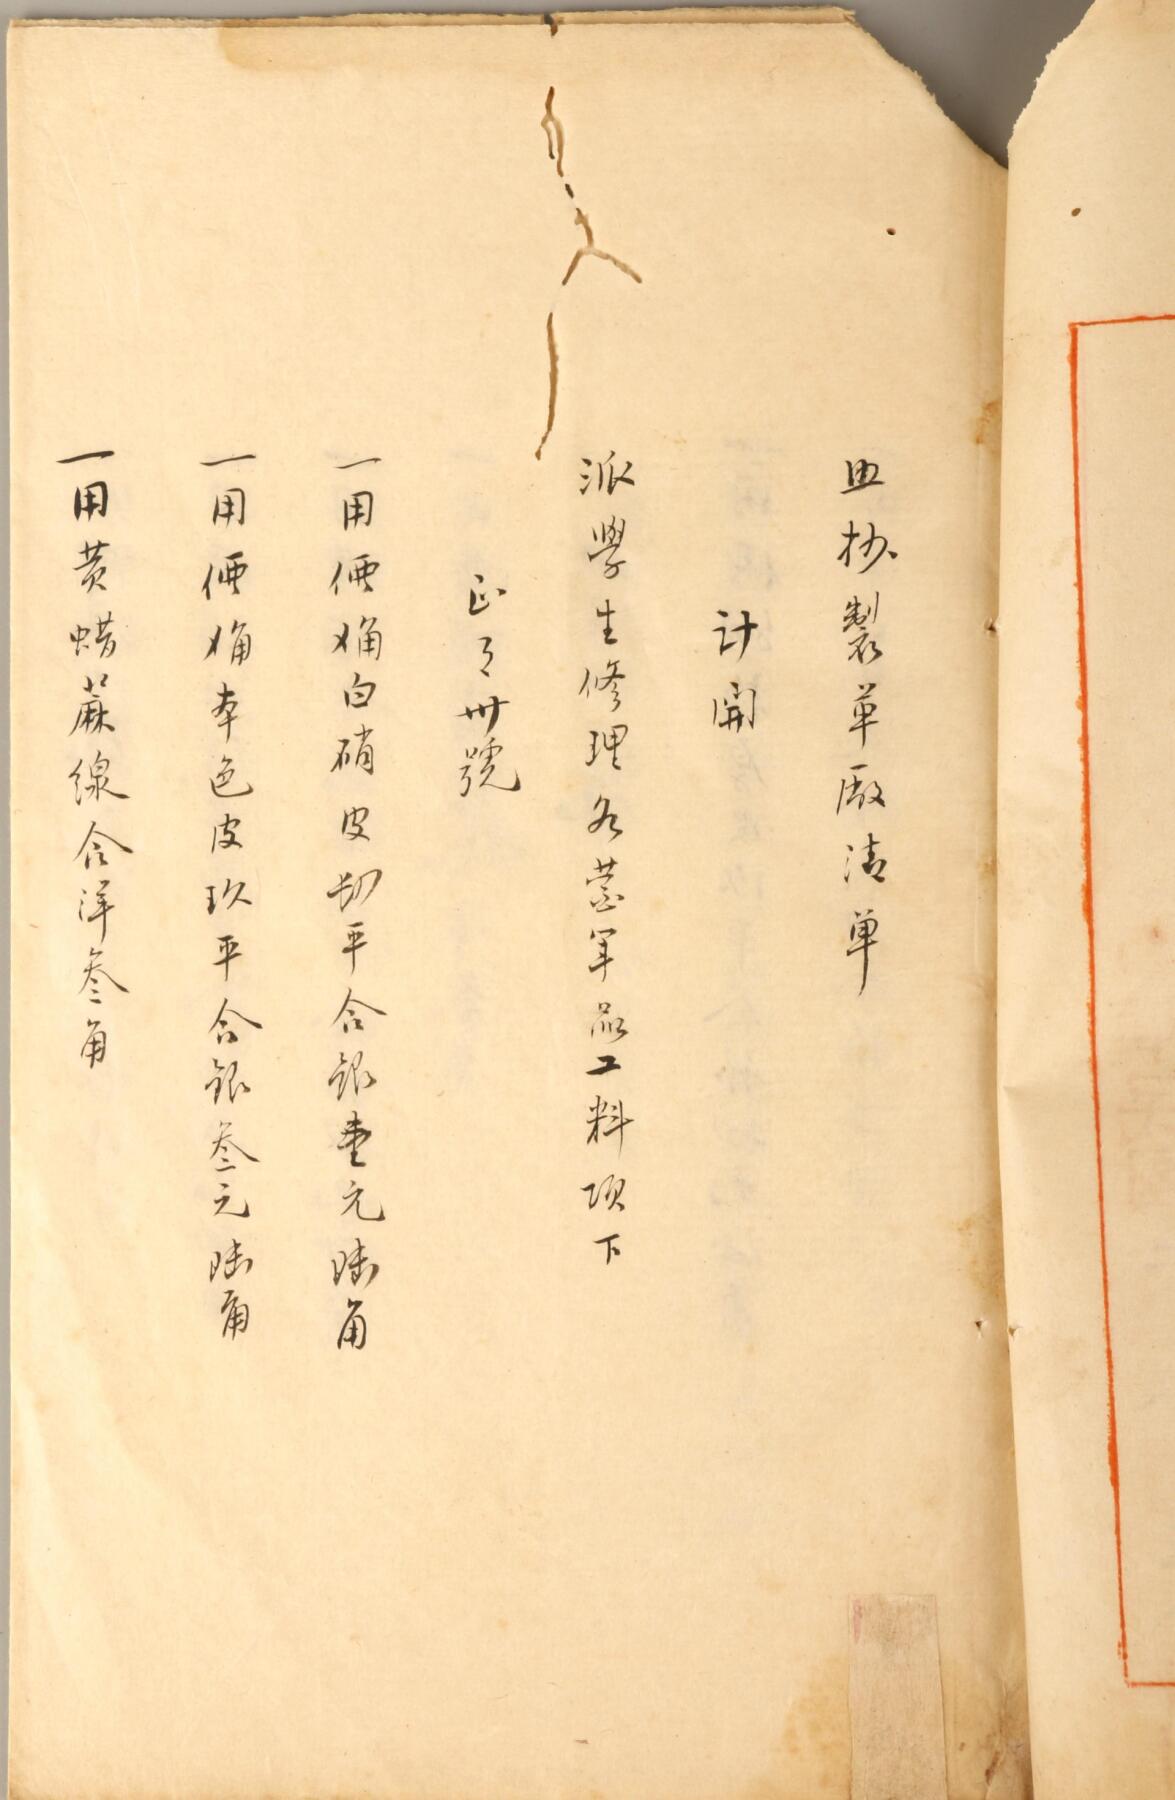 照抄製革廠清單
計開
派學生修理各營軍品工料項下
正月卅號
一用白硝皮肆平合銀壹元陸角
一用本色皮玖平合銀叁元陸角
一用黄蜡蔴線合洋叁角